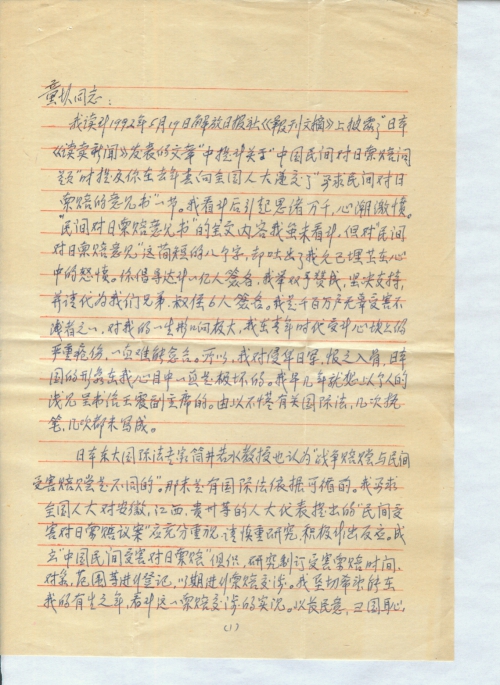 童增同志:
我读到1992年5月19日解放日报社《报刊文摘》上披露了"日本
《读卖新闻》发表的文章"中提到关于"中国民间对日索赔问
题"时提及你在去年春向全国人大递交了"要求民间对日
索赔的意见书"一节。我看到后引起思绪万千,心潮激愤。
"民间对日索赔意见书"的全文内容我虽未看到,但对"民间
对日索赔意见"这简短的八个字,却吐出了我久已埋在心
中的怒愤。你倡导达到一亿人签名,我举双手赞成,坚决支持,
并请代为我们兄弟、叔侄6人签名。我是千百万户无辜受害不
,对我的一生影响极大,我在青年时代受到心坎上的
严重疮伤,一直难能忘怀。所以,我对侵华日军,恨之入骨,日本
国的形象在我心目中一直是极坏的。我早几年就想以个人的
浅见呈书
笔,几次都未写成。
日本东大国际法专家筒井若水教授也认为"战争赔偿与民间
受害赔偿是不同的"。那末是有国际法依据可循的。我要求
全国人大对安徽、江西、贵州等的人大代表提出的"民间受
害对日索赔议案"应充分重视,请慎重研究积极作出反应。成
立"中国民间受害对日索赔"组织,研究制订受害索赔时间、
对象、范围等进行登记,以期进行索赔交涉。我坚切希望能在
我的有生之年,看到这一索赔交涉的实况。以长民意,
(1)